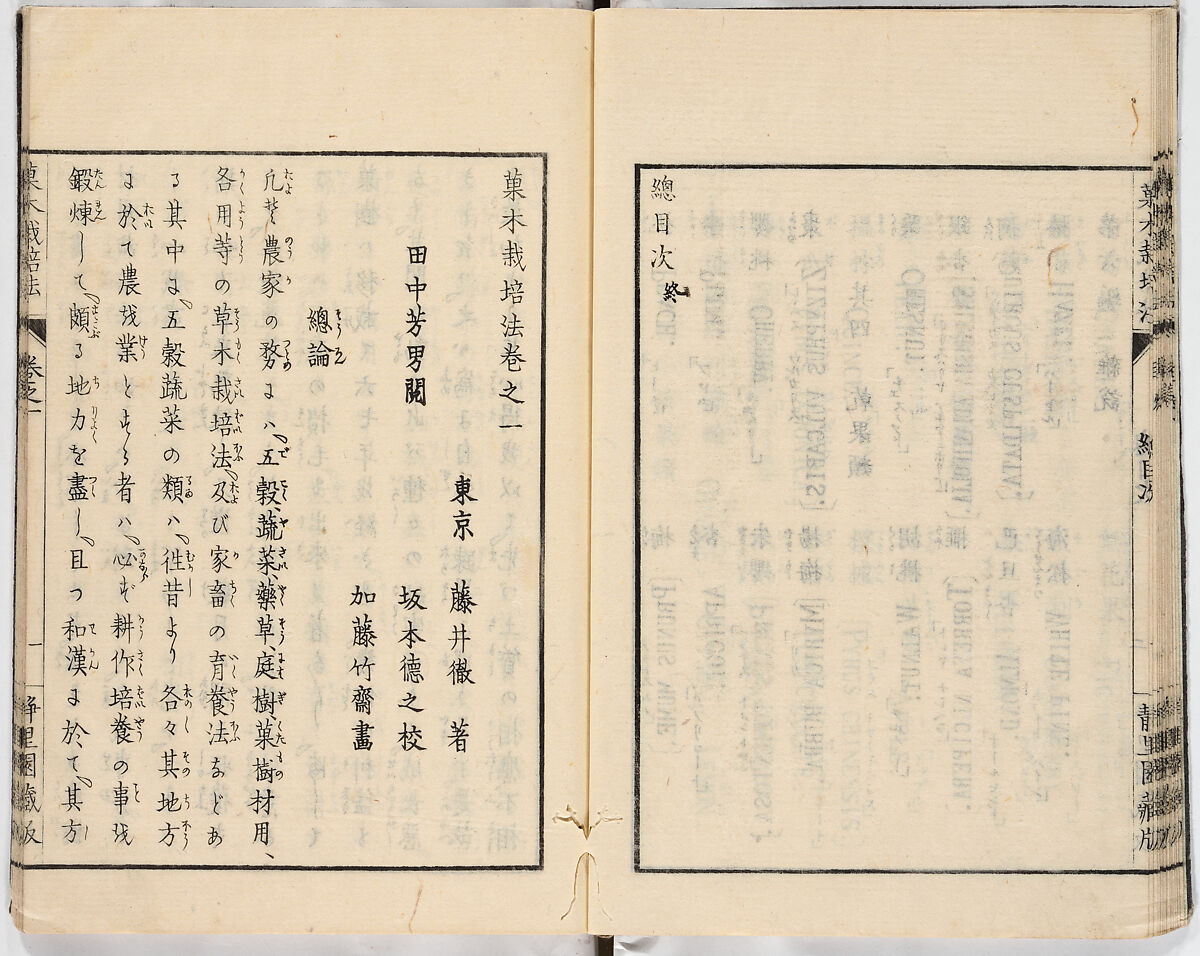 菓木栽培法
總目次
靜里園藏版
總目次終
菓木栽培法卷之一
東京 藤井徹 著
田中芳男閲
坂本德之校
加藤竹齋畫
總論
凡そ農家の務には、五穀、蔬菜、藥草、庭樹、菓樹、材用、
各用等の草木栽培法、及び家畜の育養法などあ
る其中に、五穀蔬菜の類は、徃昔より各々其地方
に於て農を業とする者は、必ず耕作培養の事を
鍛煉して、頗る地力を盡し、且つ和漢に於て、其方
菓木栽培法
卷之一
一
靜里園藏版